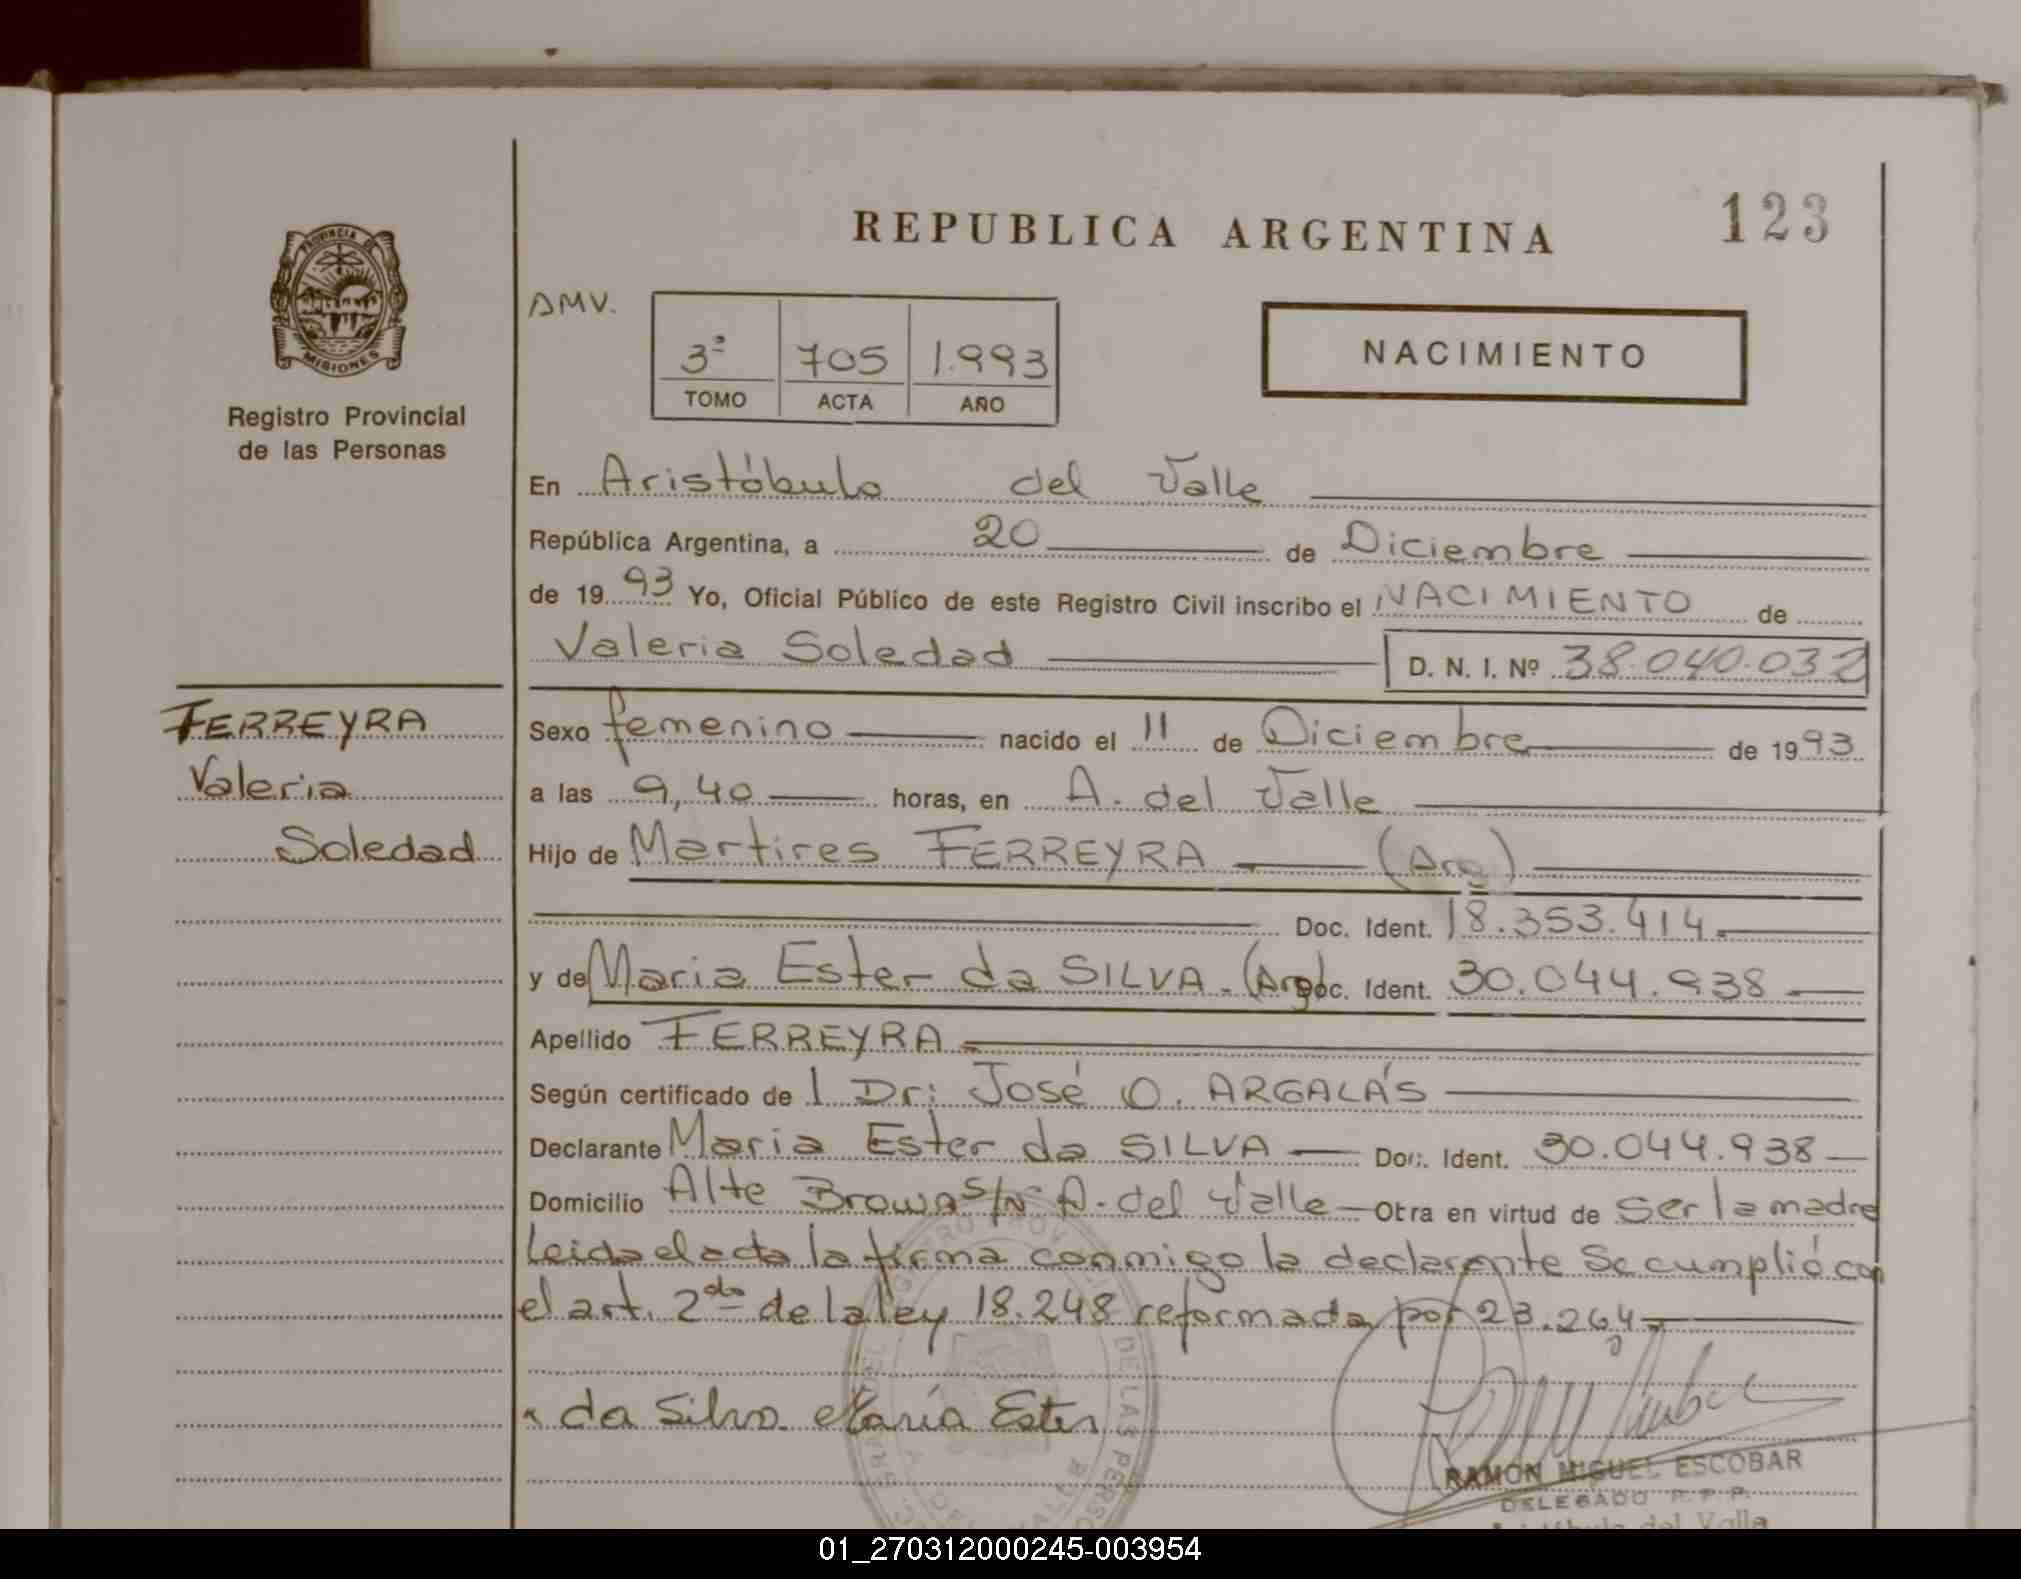 REPUBLICA ARGENTINA
123
PROVINCIA DE
MISIONES
Registro Provincial
de las Personas
AMV.
3º 705 1.993
TOMO ACTA AÑO
NACIMIENTO
En Aristóbulo del Valle
República Argentina, a 20 de Diciembre
de 1993 Yo, Oficial Público de este Registro Civil inscribo el NACIMIENTO de
Valeria Soledad D. N. I. Nº 38.040.032
FERREYRA
Valeria
Soledad
Sexo femenino nacido el 11 de Diciembre de 1993
a las 9,40 horas, en A. del Valle
Hijo de Martires FERREYRA (Arg)
Doc. Ident. 18.353.414.
y de Maria Ester da SILVA. (Arg) Doc. Ident. 30.044.938
Apellido FERREYRA
Según certificado de l Dr: José O. ARGALÁS
Declarante Maria Ester da SILVA Doc. Ident. 30.044.938
Domicilio Alte Brown S/Nº A. del Valle Otra en virtud de ser la madre
Leida el acta la firma conmigo la declarante Se cumplió con
el art. 2do de la ley 18.248 reformada por 23.264.
x da Silva María Ester
RAMON MIGUEL ESCOBAR
DELEGADO R. P. P.
Aristóbulo del Valle
01_270312000245-003954